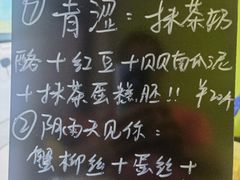 ① 青涩：抹茶奶
酪+红豆+贝贝南瓜泥
+抹茶蛋糕胚!! ¥22个
②阴雨天见你：
蟹柳丝+蛋丝+